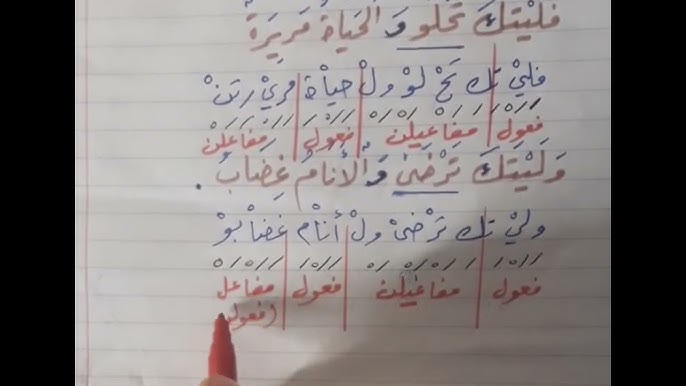 فَلَيْتَكَ تَحْلُو وَ الْحَيَاةُ مَرِيرَةٌ
فليْ تك تحْ لوْ ولْ حياْة مريْ رتنْ
فعول مفاعيلن فعول مفاعلن
وَلَيْتَكَ تَرْضَىٰ وَالْأَنَامُ غِضَابُ .
وليْ تك ترْضىْ ولْ أناْم غضاْبوْ
فعول مفاعيلن فعول مفاعل
(فعولن